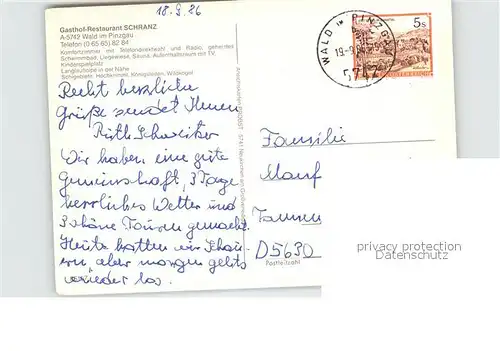 18.9.86
Gasthof-Restaurant SCHRANZ
A-5742 Wald im Pinzgau
Telefon (0 65 65) 82 84
Komfortzimmer mit Telefondirektwahl und Radio, geheiztes
Schwimmbad, Liegewiese, Sauna, Aufenthaltsraum mit TV,
Kinderspielplatz
Langlaufloipe in der Nähe
Schigebiete: Hochkrimml, Königsleiten, Wildkogel
Recht herzliche
Grüße sendet Ihnen
Ruth Schweitzer
Wir haben eine gute
Gemeinschaft, 3 Tage
herrliches Wetter und
3 schöne Touren gemacht.
Heute hatten wir Schau-
ern, aber morgen gehts
wieder los.
WALD IM PINZG
19-9
5742
5s
Familie
Manf
D5630
Postleitzahl
privacy protection
Datenschutz